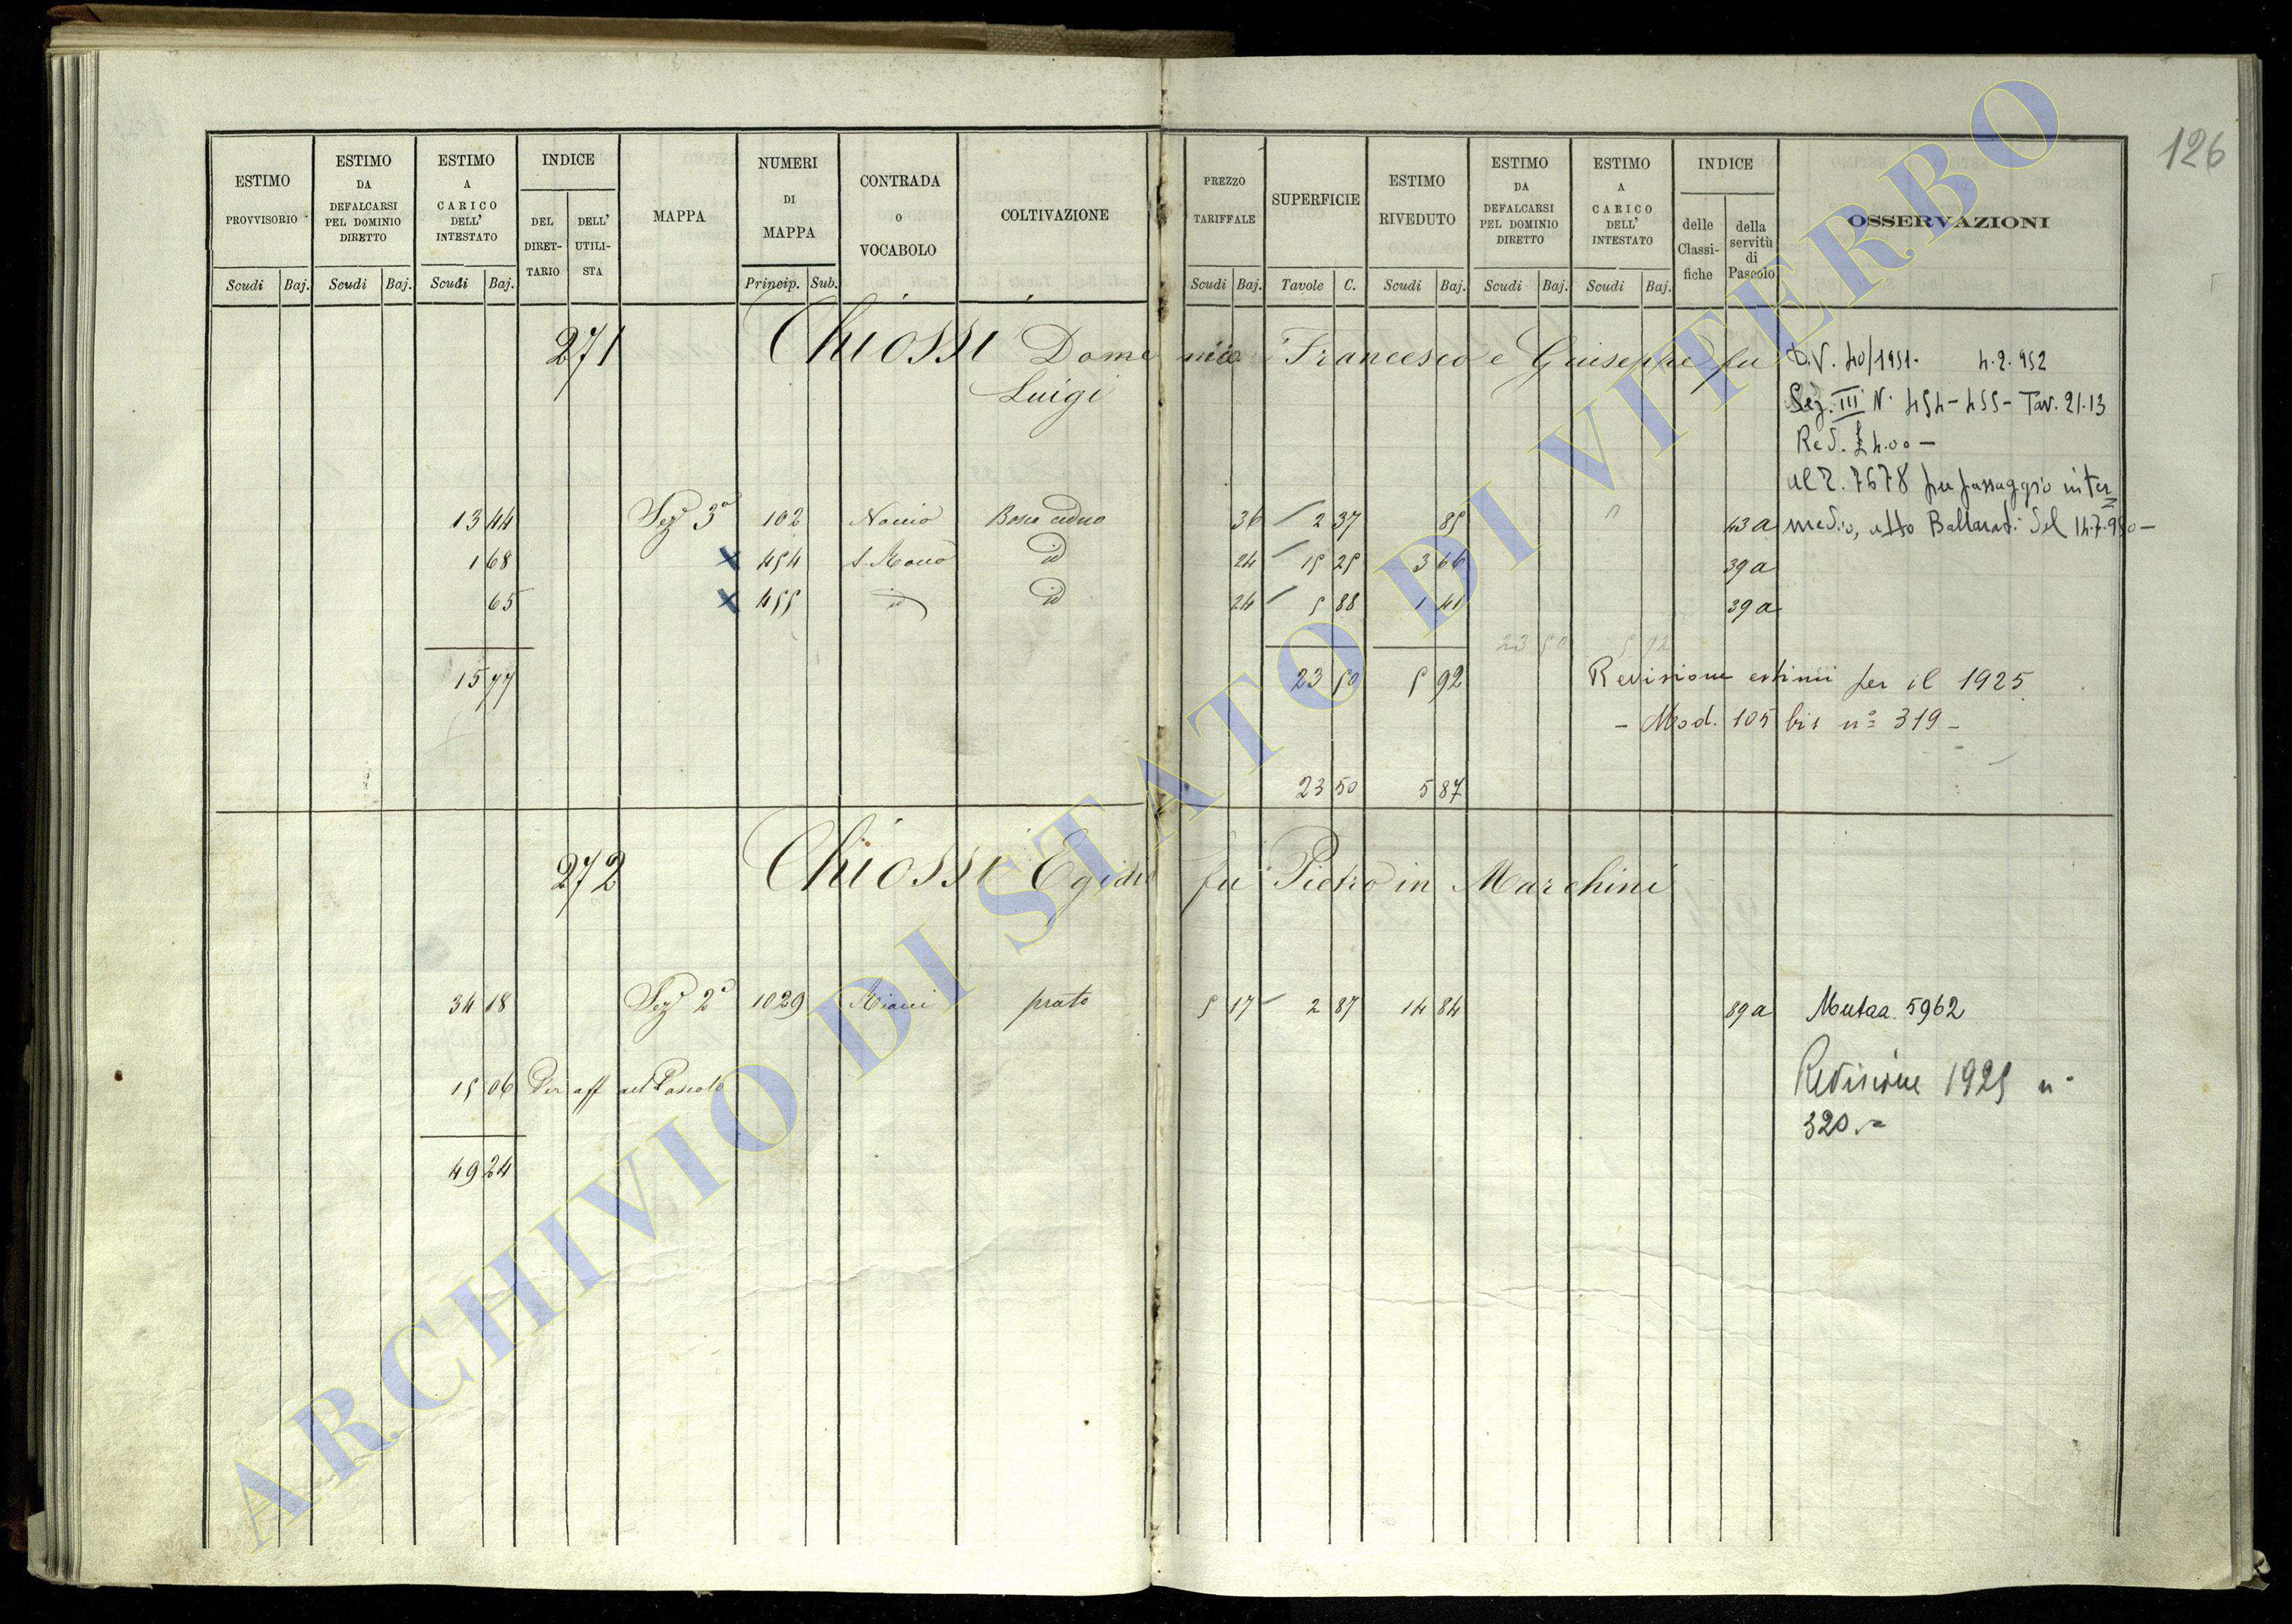 126
ESTIMO PROVVISORIO
ESTIMO DA DEFALCARSI PEL DOMINIO DIRETTO
ESTIMO A CARICO DELL' INTESTATO
INDICE
DEL DIRET-TARIO
DELL' UTILI-STA
MAPPA
NUMERI DI MAPPA
CONTRADA O VOCABOLO
COLTIVAZIONE
PREZZO TARIFFALE
SUPERFICIE
ESTIMO RIVEDUTO
ESTIMO DA DEFALCARSI PEL DOMINIO DIRETTO
ESTIMO A CARICO DELL' INTESTATO
INDICE
delle Classi-fiche
della servitù di Pascolo
OSSERVAZIONI
Scudi Baj. Scudi Baj. Scudi Baj. Princip. Sub. Scudi Baj. Tavole C. Scudi Baj. Scudi Baj. Scudi Baj.
271 Chiossi Domenico Francesco e Giuseppe fu
Luigi
D.V. 40/1951. 4.2.952
Sez. III N. 454-455- Tav. 21.13
Red. £ 4.00 -
al R. 7678 per passaggio inter
medio, atto Ballarati del 14.7.950-
13 44 Sez 3ª 102 Bosco ceduo 36 2 37 85 43 a
1 68 x 454 S. Rocco id 24 15 25 3 66 39 a
65 x 455 id id 24 5 88 1 41 39 a
23 50 5 92
15 77 23 50 5 92
Revisione estimi per il 1925
- Mod. 105 bis nº 319 -
23 50 5 87
272 Chiossi Egidio fu Pietro in Marchini
34 18 Sez 2ª 1029 Miani prato 5 17 2 87 14 84 89 a Mutaa. 5962
15 06 Per aff del Pascolo
Revisione 1925 nº
320.
49 24
ARCHIVIO DI STATO DI VITERBO